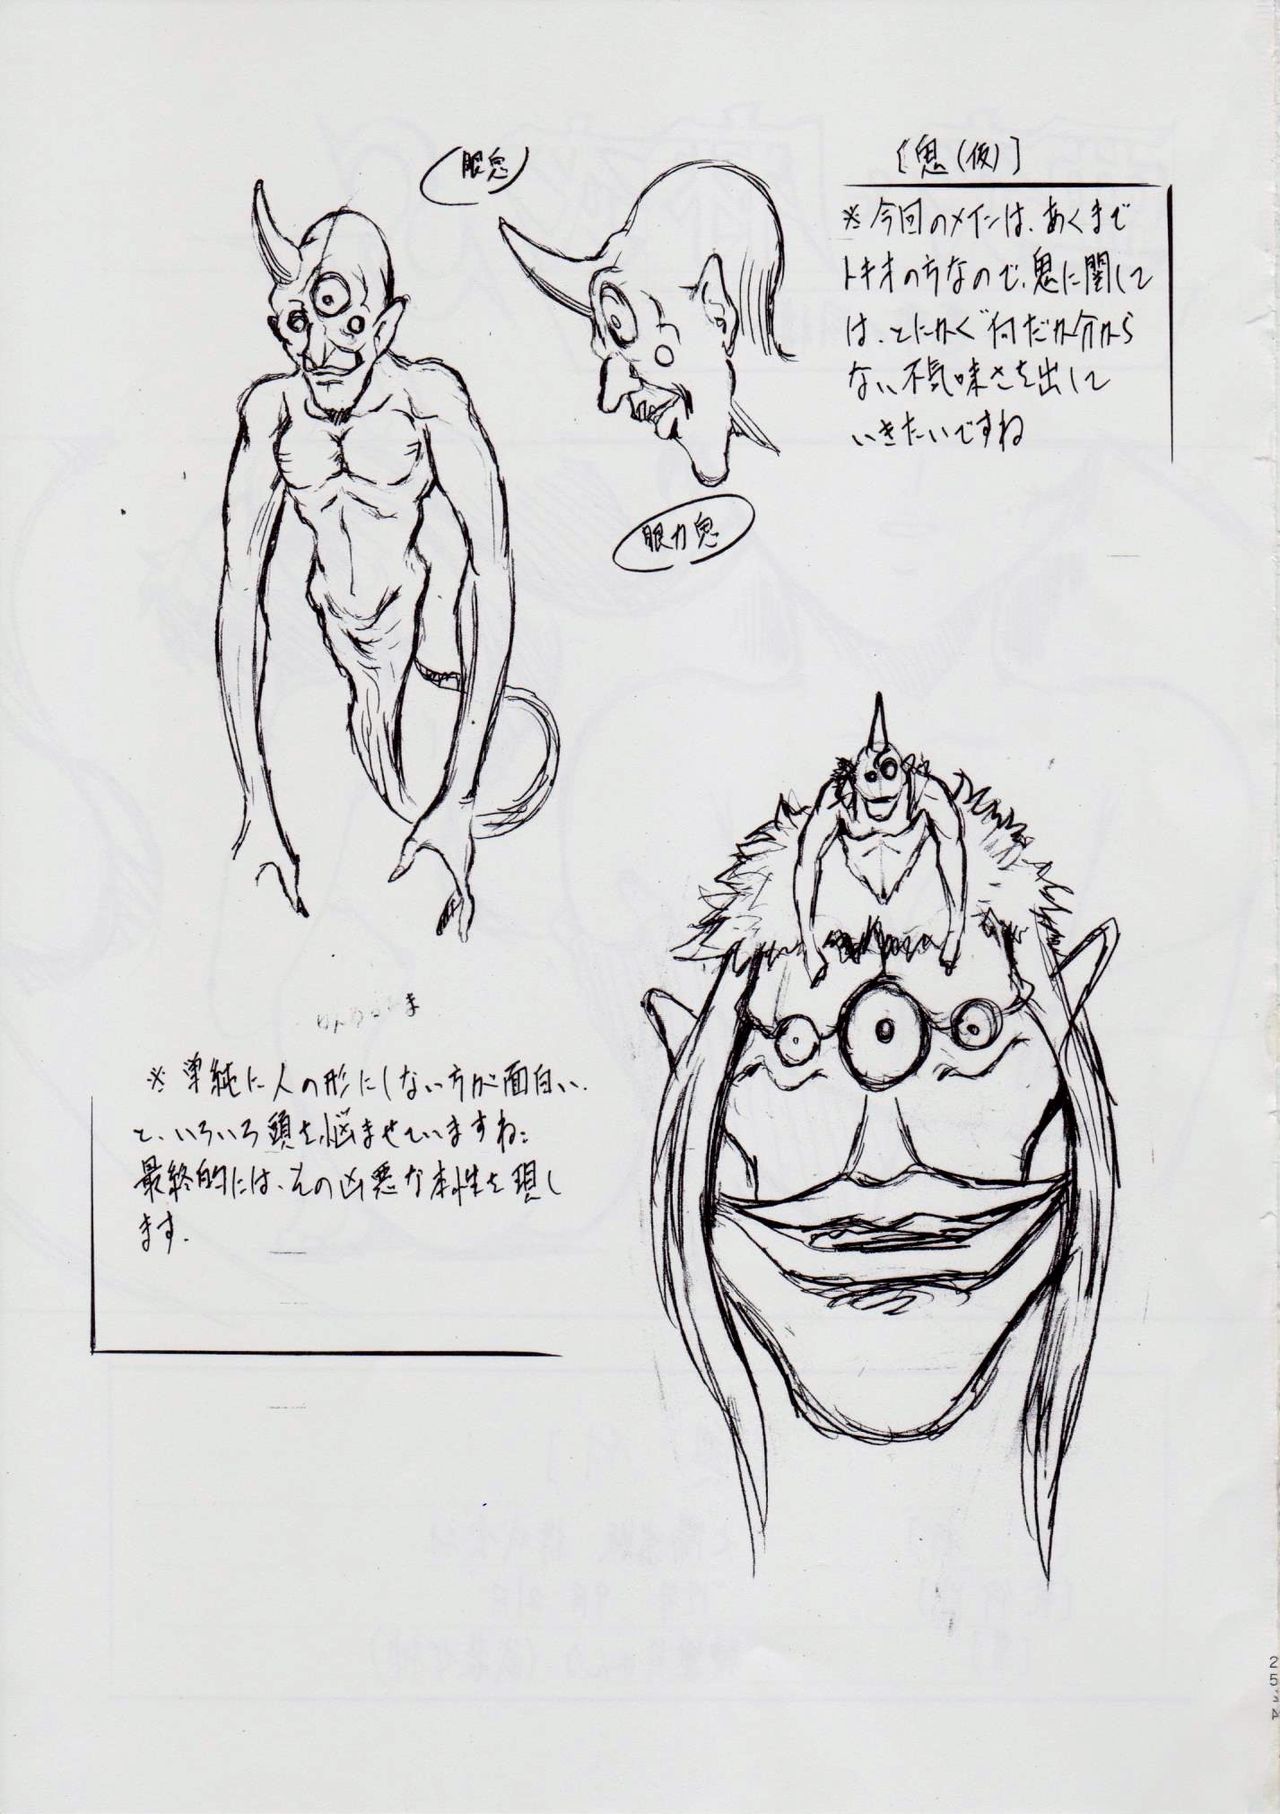 眼鬼
[鬼(仮)]
※今回のメインは、あくまで
トキオの方なので、鬼に関して
は、とにかく"何だか分から
ない不気味さを出して
いきたいですね
眼力鬼
※単純に人の形にしない方が面白い、
と、いろいろ頭を悩ませていますね:
最終的には、その凶悪な本性を現し
ます.